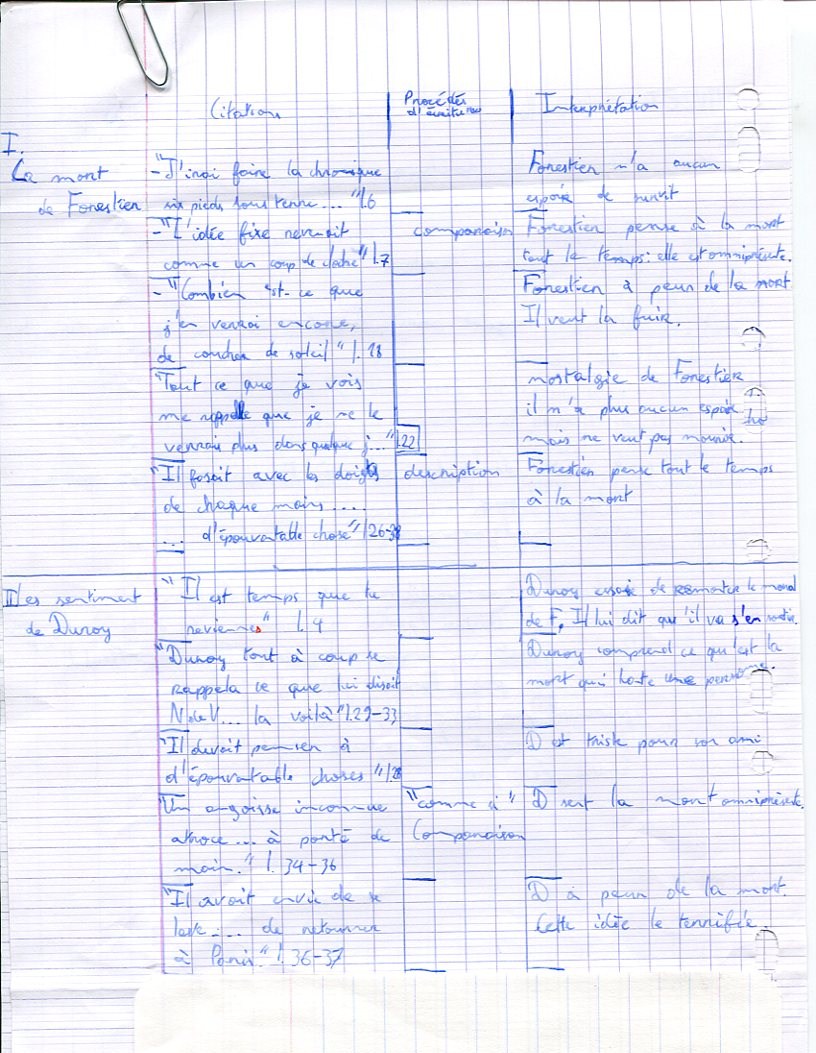 Citation
Procédés
d'écriture
Interprétation
I.
La mort
de Forestier
-"J'irai faire la chronique
six pieds sous terre... "l.6
Forestier n'a aucun
espoir de
-"L'idée fixe revenait
comme un coup de cloche" l.7
comparaison
Forestier pense à la mort
tout le temps: elle est omniprésente.
-"Combien est-ce que
j'en verrai encore,
de coucher de soleil" l.18
Forestier à peur de la mort
Il veut la fuire.
"Tout ce que je vois
me rappelle que je ne le
verrai plus dans quelque j..." 22
nostalgie de Forestier
il n'a plus aucun espoir
mais ne veut pas mourir.
"Il faisait avec les doigts
de chaque mains ....
... d'épouvatable chose" l26-
description
Forestier pense tout le temps
à la mort
II les sentiment
de Duroy
"Il est temps que tu
reviennes" l.4
Duroy essaie de remonter le moral
de F, Il lui dit qu'il va s'en sortir.
"Duroy tout à coup se
rappela ce que lui disait
NdeV... la voilà" l.29-33
Duroy comprend ce qu'est la
mort qui hante une personne.
"Il devait penser à
d'épouvatable choses" l28
D est triste pour son ami
"Un angoisse inconnue
atroce... à porté de
main." l.34-36
"comme si"
Comparaison
D sent la mort omniprésente.
"Il avait envie de se
leve.... de retourner
à Paris." l.36-37
D à peur de la mort.
Cette idée le terrifiée.